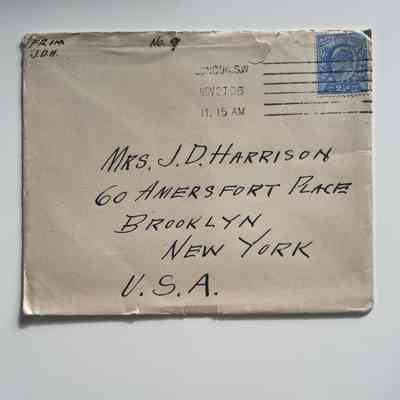 FROM
J.D.H.
No. 9
LONDON.S.W
NOV 27 06
11.15 AM
MRS. J.D. HARRISON
60 AMERSFORT PLACE
BROOKLYN
NEW YORK
U.S.A.